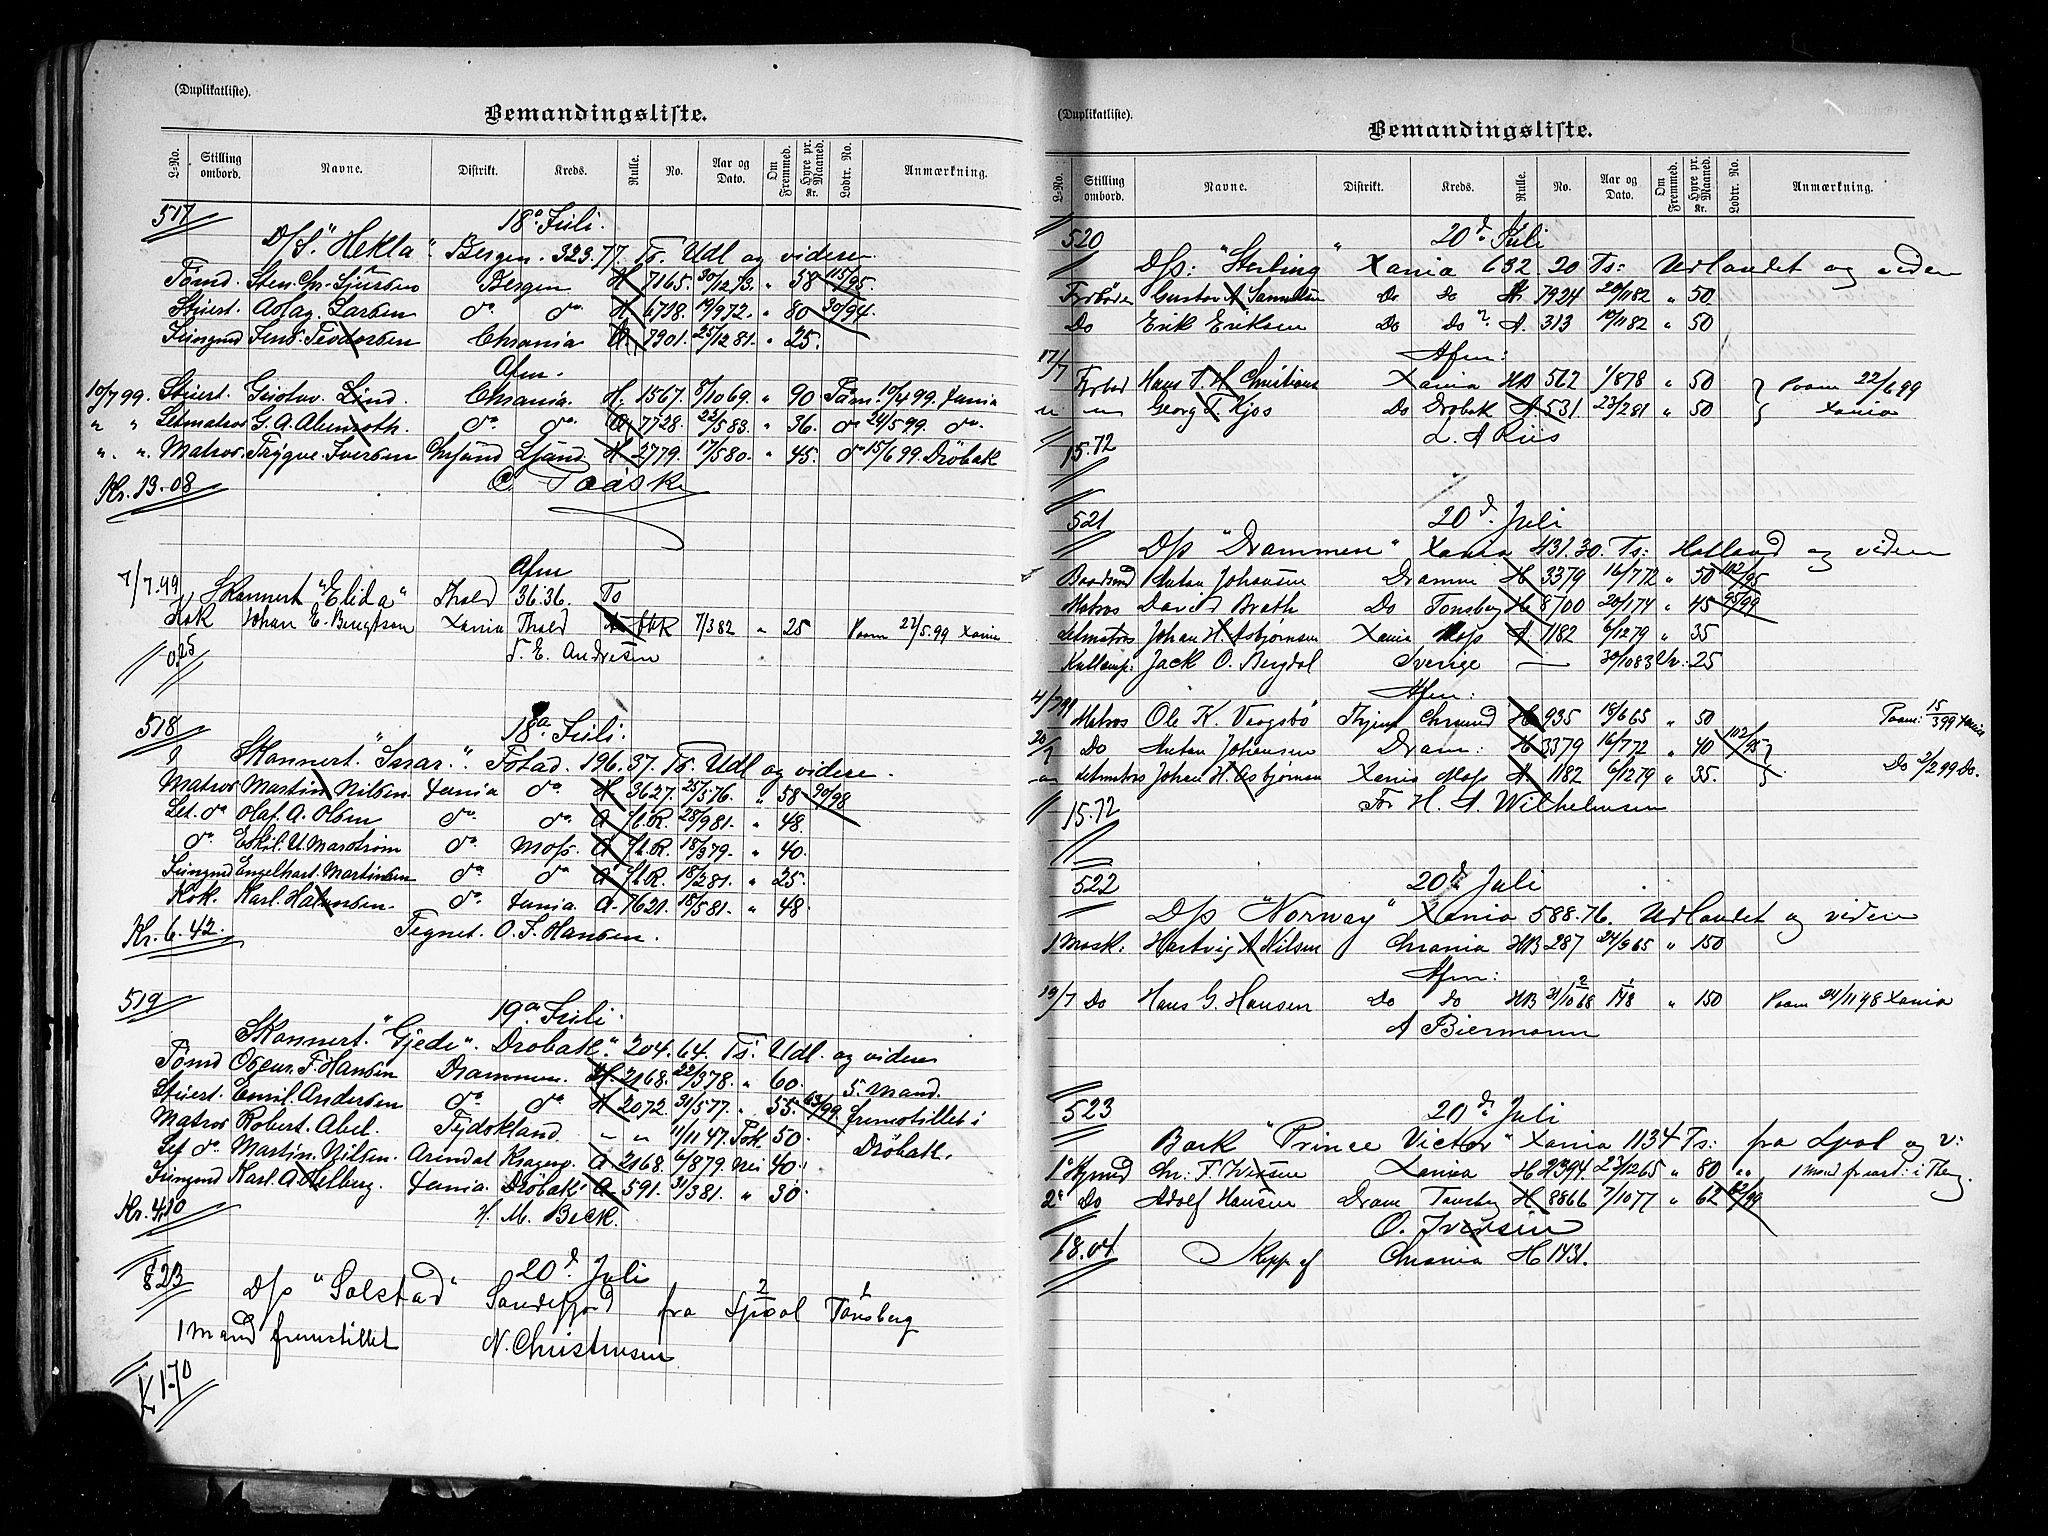 (Duplikatliste).
Bemandingsliste.
L-No. Stilling ombord. Navne. Distrikt. Kreds. Rulle. No. Aar og Dato. Om Fremmed. Hyre pr. Maaned. Kr. Lodtr. No. Anmærkning.
517 18de Juli.
D/S. "Hekla" Bergen. 323.77. Ts. Udl og videre
Tømd Sten Chr. Bergen H 7165. 30/12 73. " 58 115/95.
Stuert. Aslag. Larsen do do H 6728. 19/9 72. " 80 30/94.
Jungmd Jens. Teodorsen Chrania A 7901. 25/12 81. " 25.
Afm.
10/7 99. Stuert. Gustav. Lind. Chrania. H. 1567. 8/10 69. " 90 Paam. 10/4 99. Xania
" " Letmatros G. A. Abenroth. do. do. A 7728. 22/5 83. " 36. do 24/5 99. do.
" " Matros. Trygve Iversen Chrsund Lsund. H 2779. 17/5 80. " 45. do 15/6 99. Drøbak
Kr. 13.08 C.
7/7.99 Afm
Skonnert "Elida" Fhald 36.36. Ts
Kok Johan E. Bengtson Xania Fhald 7/3 82 " 25 Paam 22/5.99 Xania
0.25 F. E. Andresen
518 18de Juli.
Skonnert. "Snar." Fstad. 196.37. Ts. Udl og videre.
Matros Martin Nilsen. Xania do. H 3627. 25/5 76. " 58 90/98
Let. do Olaf. A. Olsen do. do. A fl.R. 28/9 81. " 48.
do. Eskil. U. Marstrøm do. Moss. A fl.R. 18/3 79. " 40.
Jungmd Engelhart. Martinsen do. do. A fl.R. 18/2 81. " 25.
Kok. Karl. Hansen. do. Xania. A. 7621. 18/5 81. " 48.
Kr. 6.42. Tegnet. O. F. Hansen.
519 19de Juli.
Skonnert. "Gjede". Drøbak. 204.64. Ts. Udl. og videre
Tømd Oscar. F. Hansen Drammen. H. 2168. 22/3 78. " 60. 5. mand.
Stuert. Emil. Andersen do. do. H 2072. 31/5 77. " 55. 63/99 fremstillet i
Matros Robert. Abel. Tydskland. " " 11/11 47. Tysk. 50. Drøbak.
Let do. Martin. Nilsen. Arendal Kragerø. A 2168. 6/8 79. Nei 40.
Jungmd Karl. A. Helberg. Xania. Drøbak. A. 591. 31/3 81. " 30
Kr. 4.10 H. M. Beck.
823 20d. Juli
D/s "Solstad" Sandefjord fra Lpool Tønsberg
1 Mand fremstillet N. Christensen
K 1.70
(Duplikatliste).
Bemandingsliste.
L-No. Stilling ombord. Navne. Distrikt. Kreds. Rulle. No. Aar og Dato. Om Fremmed. Hyre pr. Maaned. Kr. Lodtr. No. Anmærkning.
520 20d Juli
D/s: "Sterling" Xania 632.20 Ts: Udlandet og videre
Fyrbøder Gustav A Samuelsen Do Do H. 7924 20/11 82 " 50
Do Erik Eriksen Do Do A. 313 10/11 82 " 50
17/7 Afm:
Fyrbød Hans T. H Christians Xania HB 562 1/8 78 " 50 Paam 22/6 99
" " Georg T. Kjos Do Drøbak A 531. 23/2 81 " 50 Xania
15.72 L. A Riis
521 20d. Juli
D/s "Drammen" Xania 431.30. Ts: Holland og videre
Baadsmd Anton Johansen Dramm H 3379 16/7 72 " 50 102/95
Matros David Brath Do Tønsberg H 8700 20/1 74 " 45 95/99
Letmatros Johan H. Asbjørnsen Xania Moss A. 1182 6/12 79 " 35
Kullemp: Jack O. Bergdal Sverige — 30/10 83 Sv. 25
4/7 99 Afm:
Matros Ole K. Vaagsbø Thjem Chrsund H 935 18/6 65 " 50 Paam: 15/3 99 Xania
20/7 Do Anton Johansen Dram: H 3379 16/7 72 " 40 102/95
" Letmatros Johan H. Asbjørnsen Xania Moss A. 1182 6/12 79 " 35. Do 2/2 99 Do.
15.72 For H. A. Wilhelmsen
522 20d Juli
D/s "Norway" Xania 588.76. Udlandet og videre
1 Mask: Hartvig A Nilsen Chrania HB 287 24/9 65 " 150
Afm:
19/7 Do Hans G. Hansen Do Do HB 31/10 68 1/98 " 150 Paam 24/11 98 Xania
A Biermann
523 20d. Juli
Bark "Prince Victor" Xania 1134 Ts: fra Lpol og v:
1" Stymd Chr. T. Iversen Xania H 2394. 23/12 65 " 80 " 1 mand fremst: i Tbg.
2" Do Adolf Hansen Dram Tønsbg H. 8866 7/10 77 " 62 82/99
O. Iversen
18.04 Skipp af Chrania H 1431.